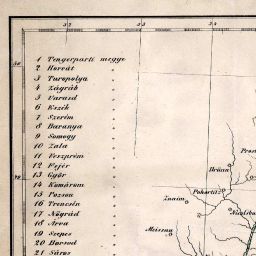 32
33
34
50
1 Tengerparti megye
2 Horvát
3 Turopolya
4 Zágráb
5 Varasd
6 Eszék
7 Szerém
8 Baranya
9 Somogy
10 Zala
11 Veszprém
12 Fejér
13 Győr
14 Komárom
15 Pozson
16 Trencsin
17 Nógrád
18 Árva
19 Szepes
20 Borsod
21 Sáros
Brünn
Pohorlitz
Znaim
Nicolsb
Meissau
Pros
49